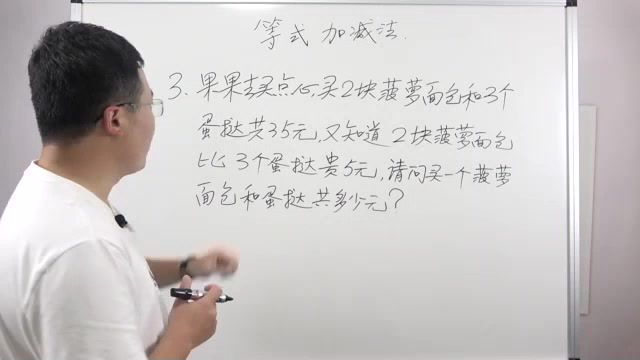 等式 加减法.
3. 果果去买点心,买2块菠萝面包和3个
蛋挞共35元,又知道2块菠萝面包
比3个蛋挞贵5元,请问买一个菠萝
面包和蛋挞共多少元?